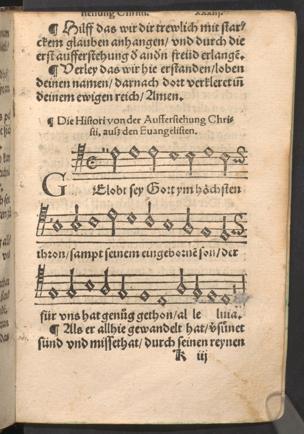 stehung Christi. xxxiij.
¶ Hilff das wir dir trewlich mit star⸗
ckem glauben anhangen/ vnd durch die
erst aufferstehung d̓ andn̄ freüd erlange.
¶ Verley das wir hie erstanden/loben
deinen namen/ darnach dort verkleret in̄
deinem ewigen reich/ Amen.
¶ Die Histori von der Aufferstehung Chri⸗
sti, ausz den Euangelisten.
GElobt sey Gott ym höchsten
thron/ sampt seinem eingebornē son/ der
für vns hat genůg gethon/ al le luia.
¶ Als er allhie gewandelt hat/ v̓sünet
sünd vnd missethat/ durch seinen reynen
K iij